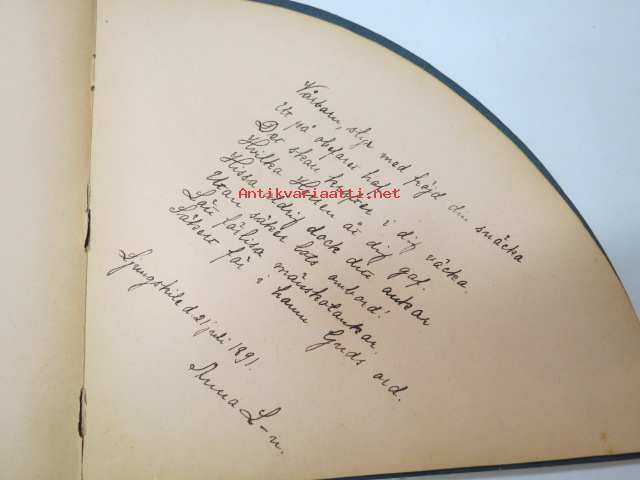 Vårbarn, styr med fröjd din snäcka
Ut på obefaret haf.
Der skall krafter i dig väcka
Hvilka Herren åt dig gaf.
Hissa aldrig dock din ankar
Utan säker lots ombord.
Lätt förlisa mänskotankar.
Säkert för i hamn Guds ord.
Ljungskile d 21 juli 1891.
Anna L-n.
Antikvariaatti.net